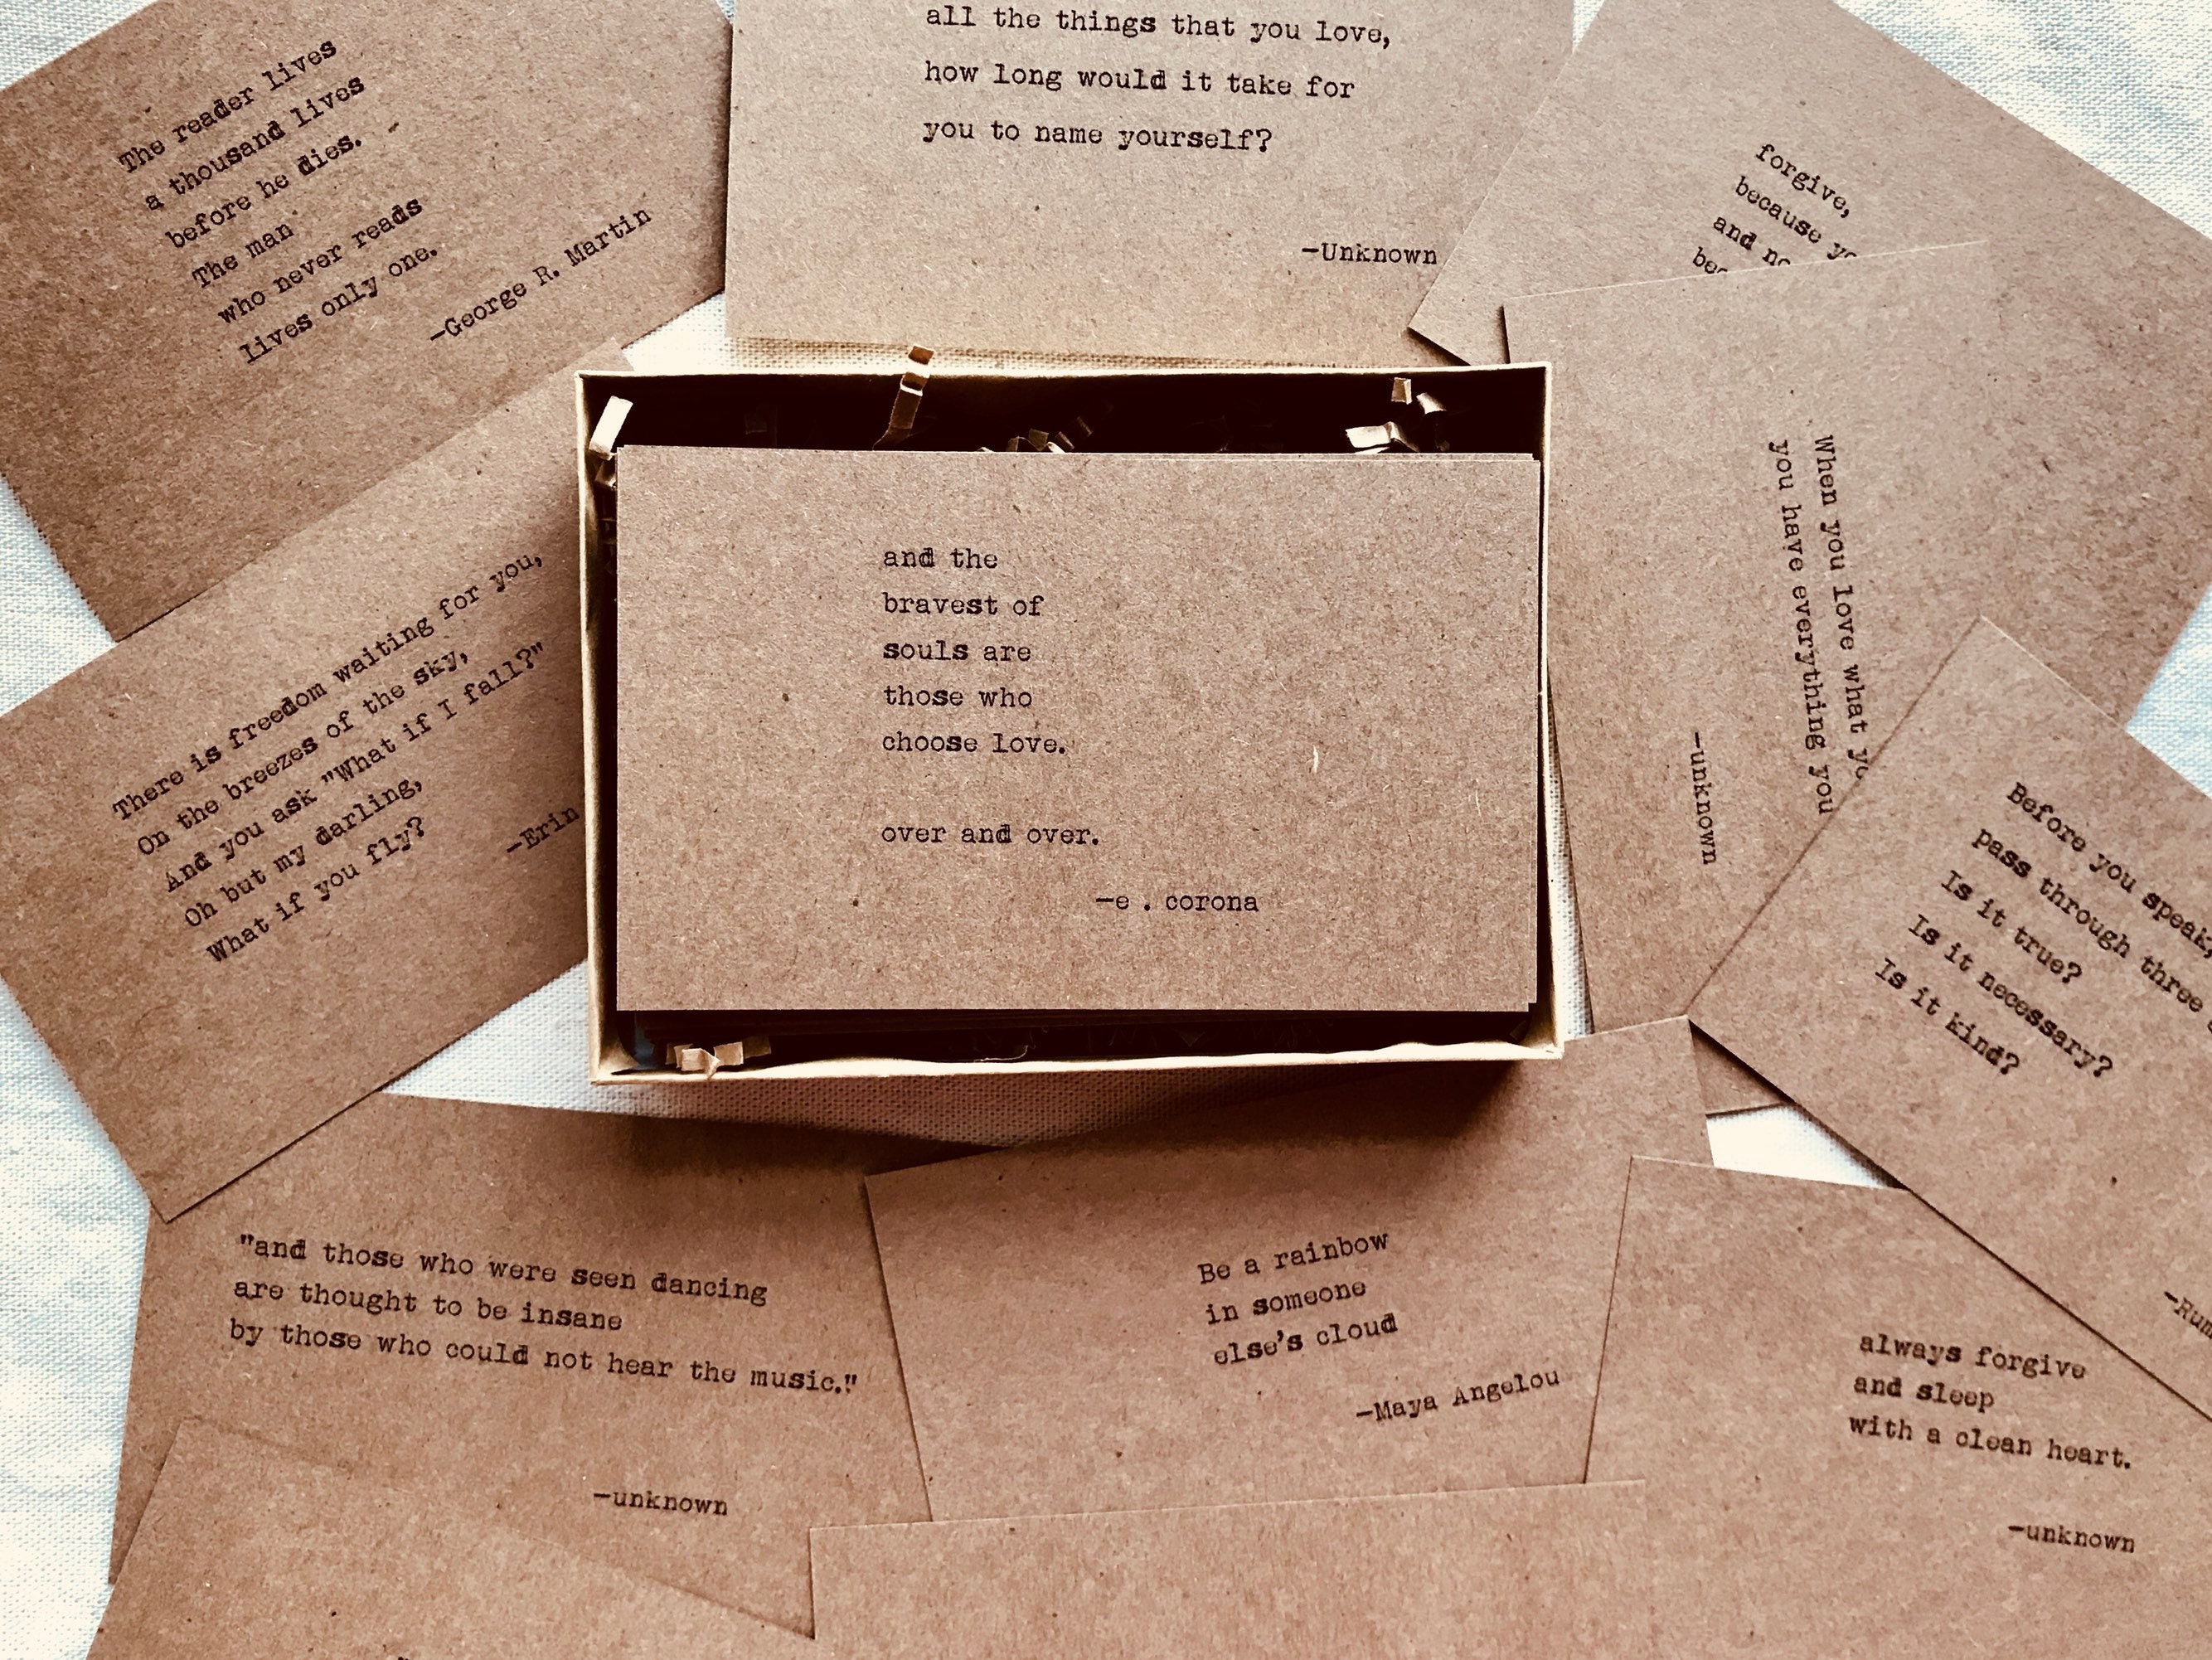 The reader lives
a thousand lives
before he dies.
The man
who never reads
lives only one.
—George R. Martin
all the things that you love,
how long would it take for
you to name yourself?
—Unknown
forgive,
because
and
When you love what
you have everything you
—unknown
There is freedom waiting for you,
On the breezes of the sky,
And you ask "What if I fall?"
Oh but my darling,
What if you fly?
—Erin
and the
bravest of
souls are
those who
choose love.
over and over.
—e . corona
Before you speak,
pass through three
Is it true?
Is it necessary?
Is it kind?
"and those who were seen dancing
are thought to be insane
by those who could not hear the music."
—unknown
Be a rainbow
in someone
else's cloud
—Maya Angelou
always forgive
and sleep
with a clean heart.
—unknown